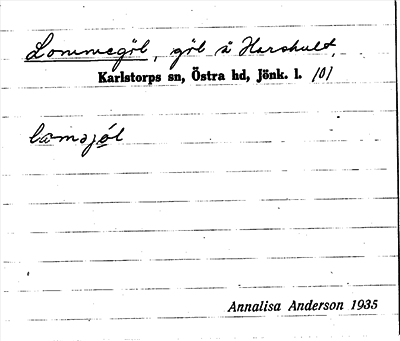 Lommegöl, göl å Harshult,
Karlstorps sn, Östra hd, Jönk. l. 101
lamǝjól
Annalisa Anderson 1935